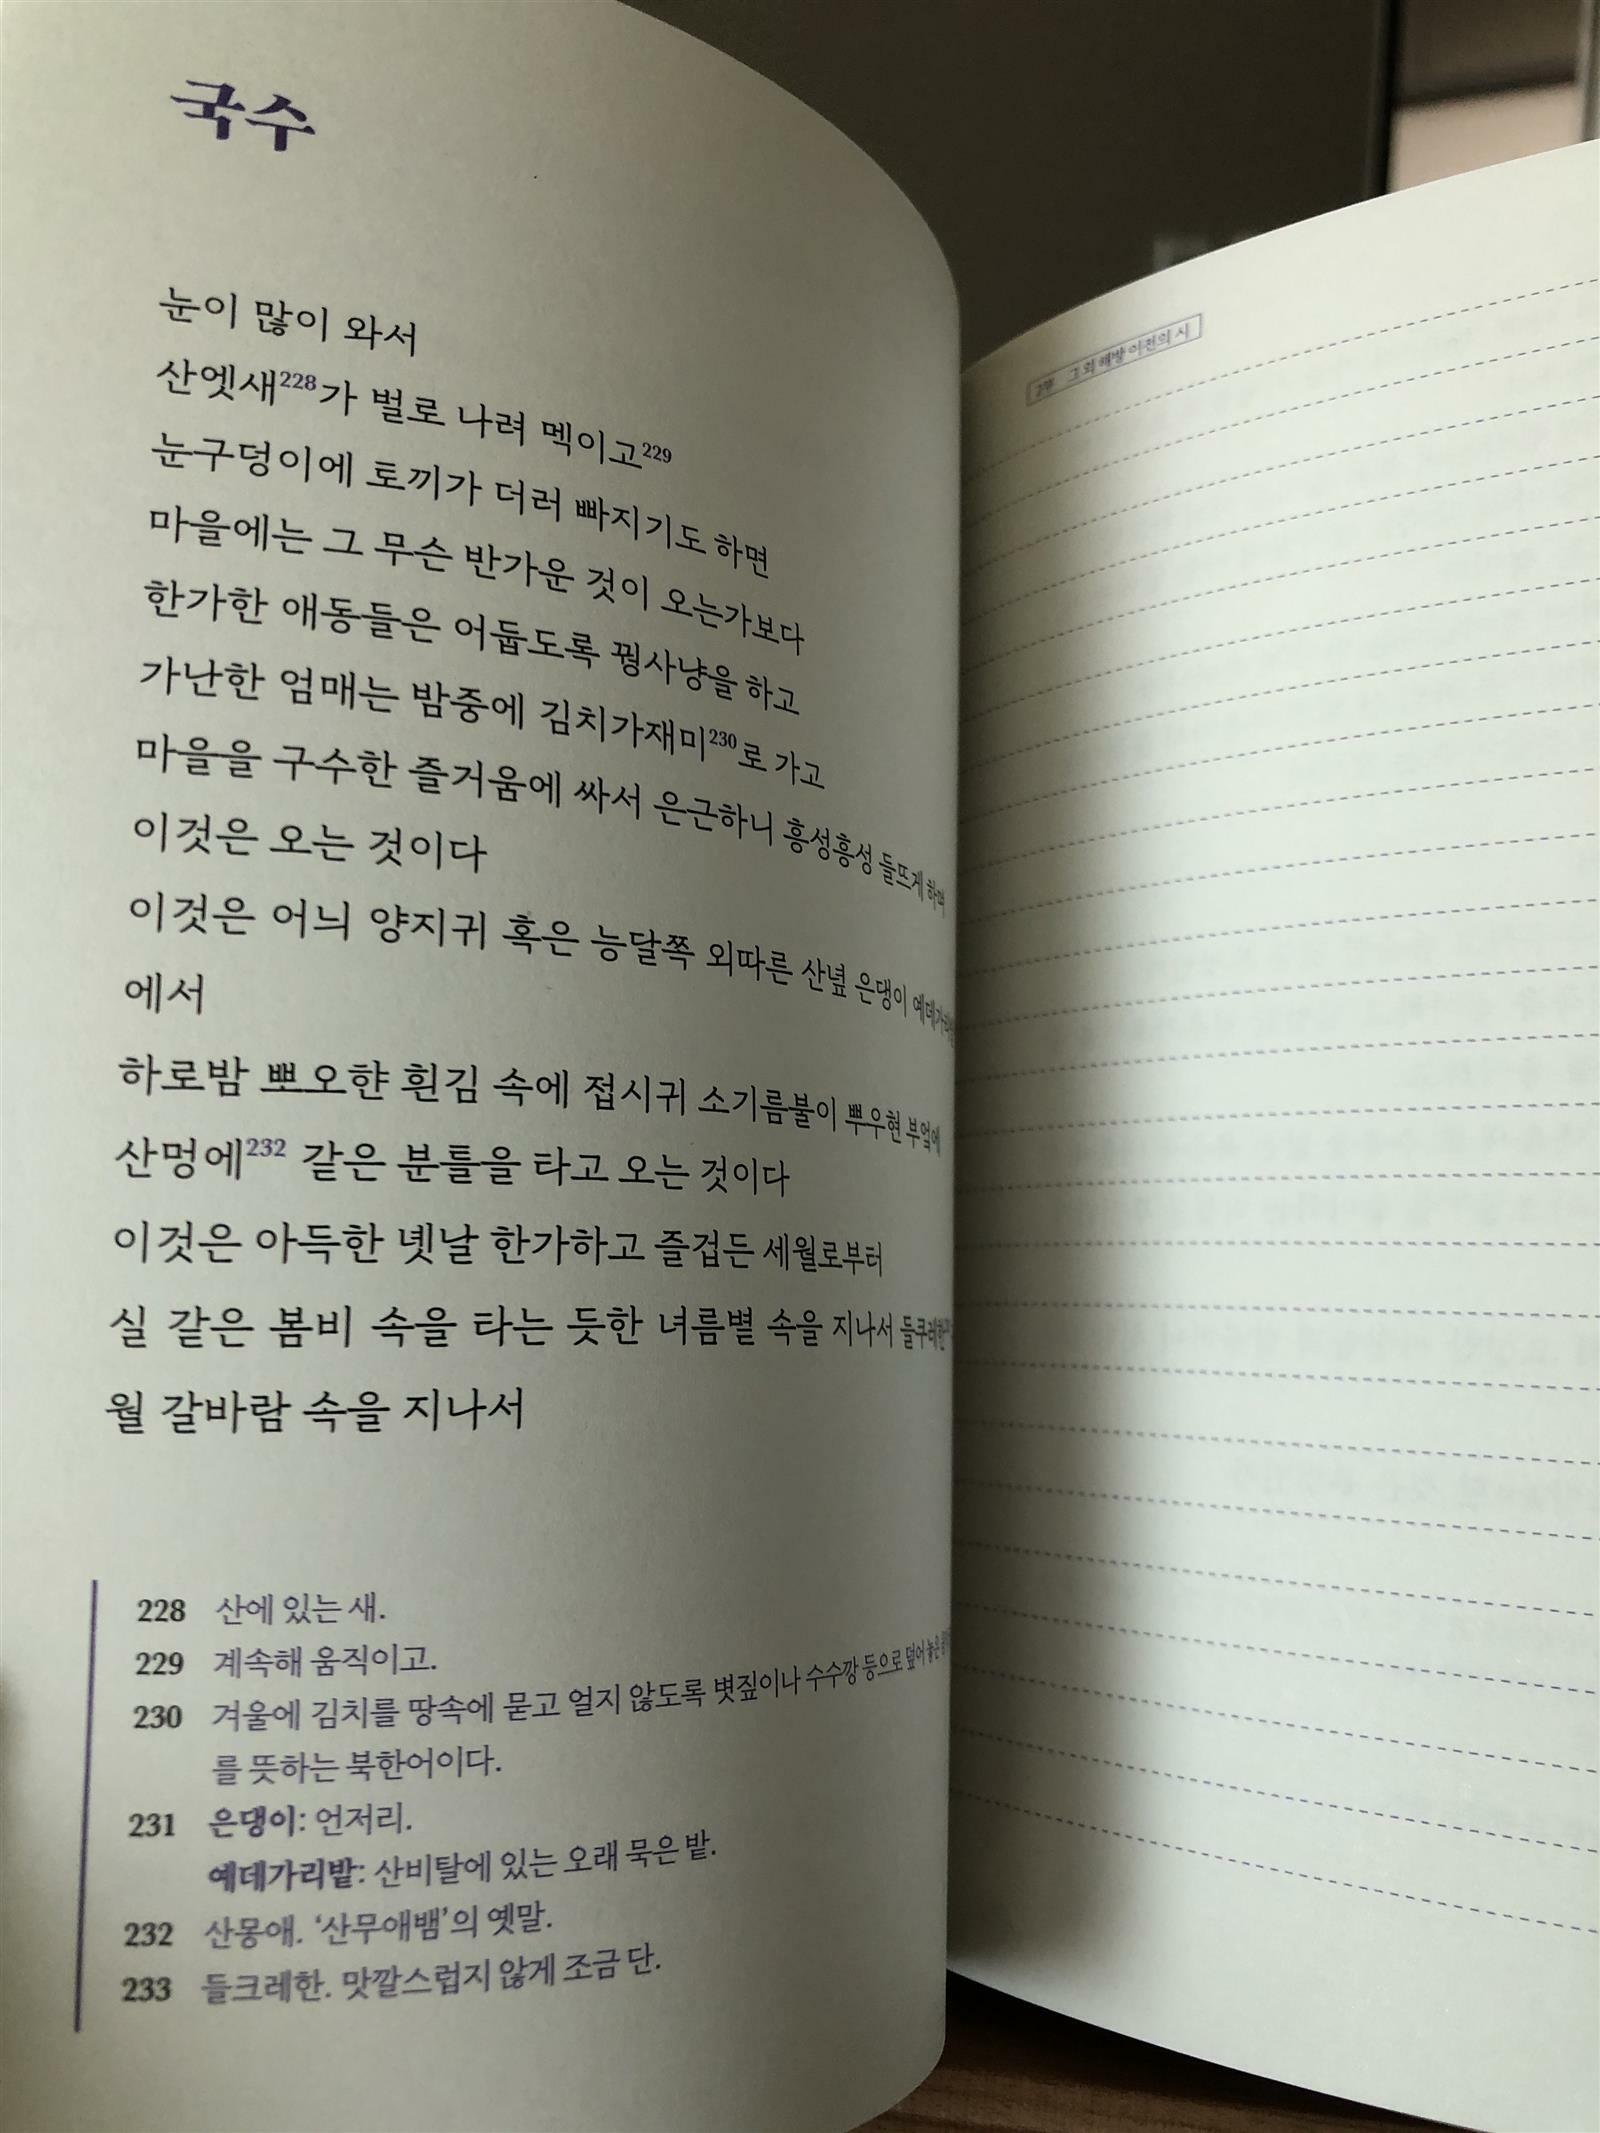 국수
눈이 많이 와서
산엣새228가 벌로 나려 멕이고229
눈구덩이에 토끼가 더러 빠지기도 하면
마을에는 그 무슨 반가운 것이 오는가보다
한가한 애동들은 어둡도록 꿩사냥을 하고
가난한 엄매는 밤중에 김치가재미230로 가고
마을을 구수한 즐거움에 싸서 은근하니 흥성흥성 들뜨게 하며
이것은 오는 것이다
이것은 어늬 양지귀 혹은 능달쪽 외따른 산녚 은댕이
에서
하로밤 뽀오햔 흰김 속에 접시귀 소기름불이 뿌우현 부엌에
산멍에232 같은 분틀을 타고 오는 것이다
이것은 아득한 녯날 한가하고 즐겁든 세월로부터
실 같은 봄비 속을 타는 듯한 녀름볕 속을 지나서 들쿠레한
월 갈바람 속을 지나서
228 산에 있는 새.
229 계속해 움직이고.
230 겨울에 김치를 땅속에 묻고 얼지 않도록 볏짚이나 수수깡 등으로 덮어 놓은
를 뜻하는 북한어이다.
231 은댕이: 언저리.
예데가리밭: 산비탈에 있는 오래 묵은 밭.
232 산몽애. ‘산무애뱀’의 옛말.
233 들크레한. 맛깔스럽지 않게 조금 단.
2부 그 외 해방 이전의 시